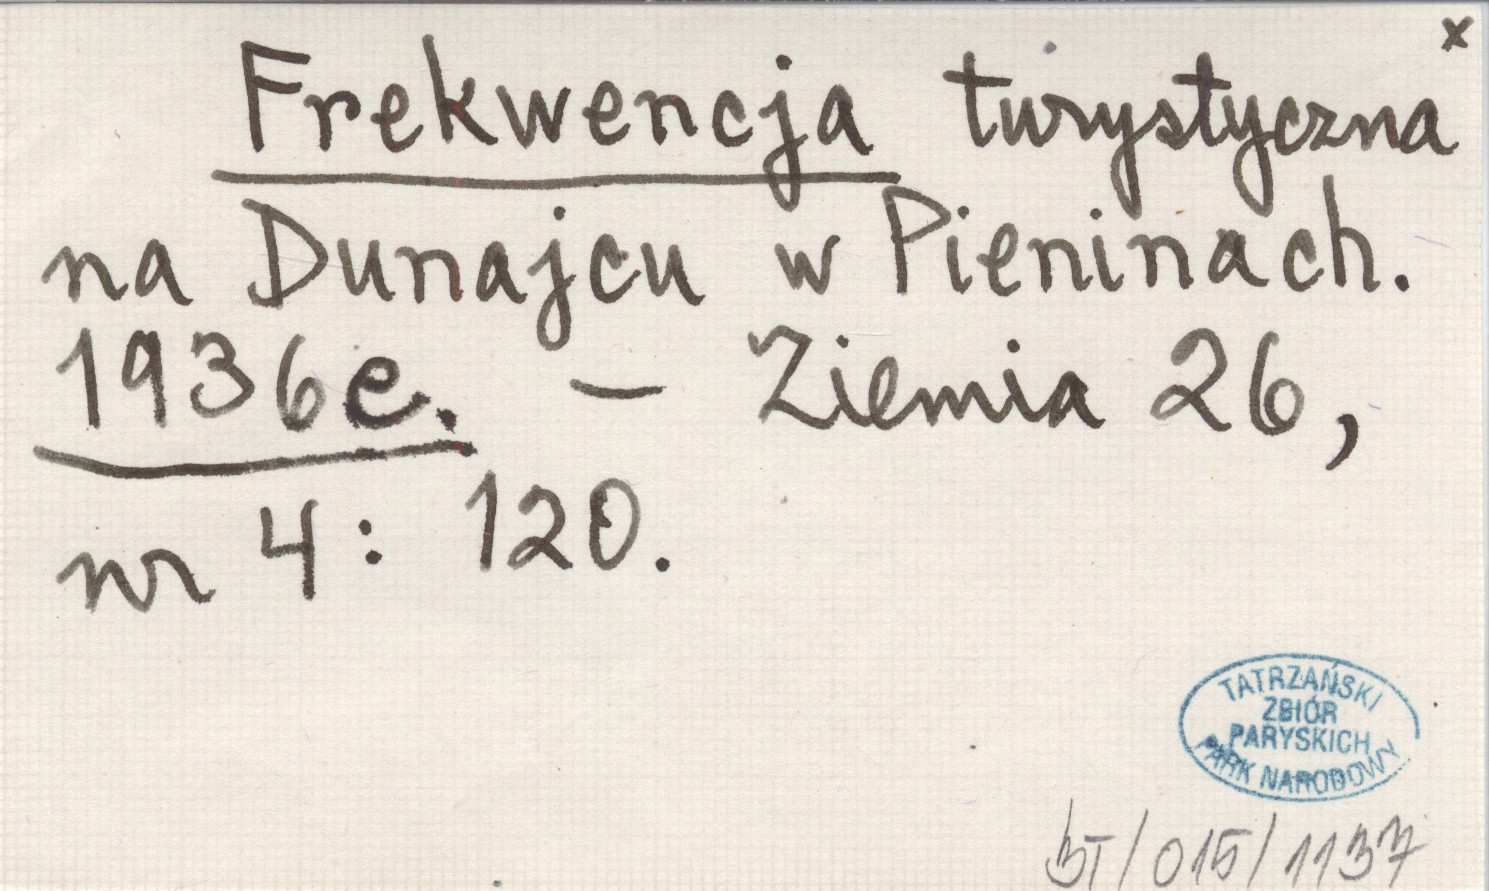 x
Frekwencja turystyczna
na Dunajcu w Pieninach.
1936e. – Ziemia 26,
nr 4: 120.
TATRZAŃSKI
ZBIÓR
PARYSKICH
PARK NARODOWY
BT/015/1137